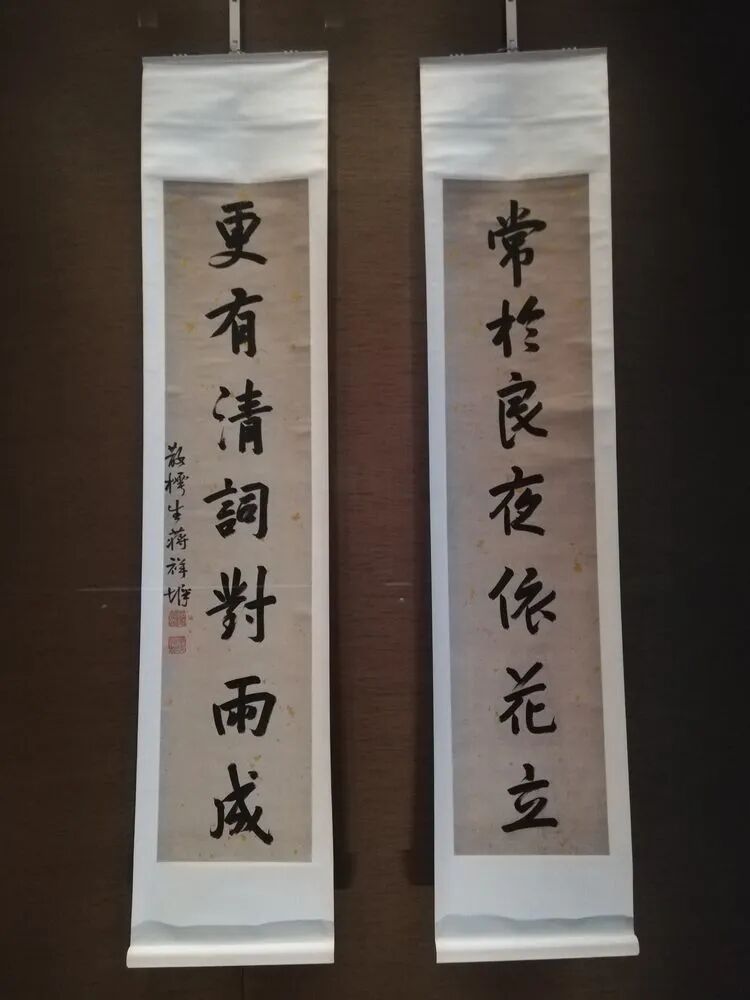 常於良夜依花立
更有清詞對雨成
散樗生蔣祥墀